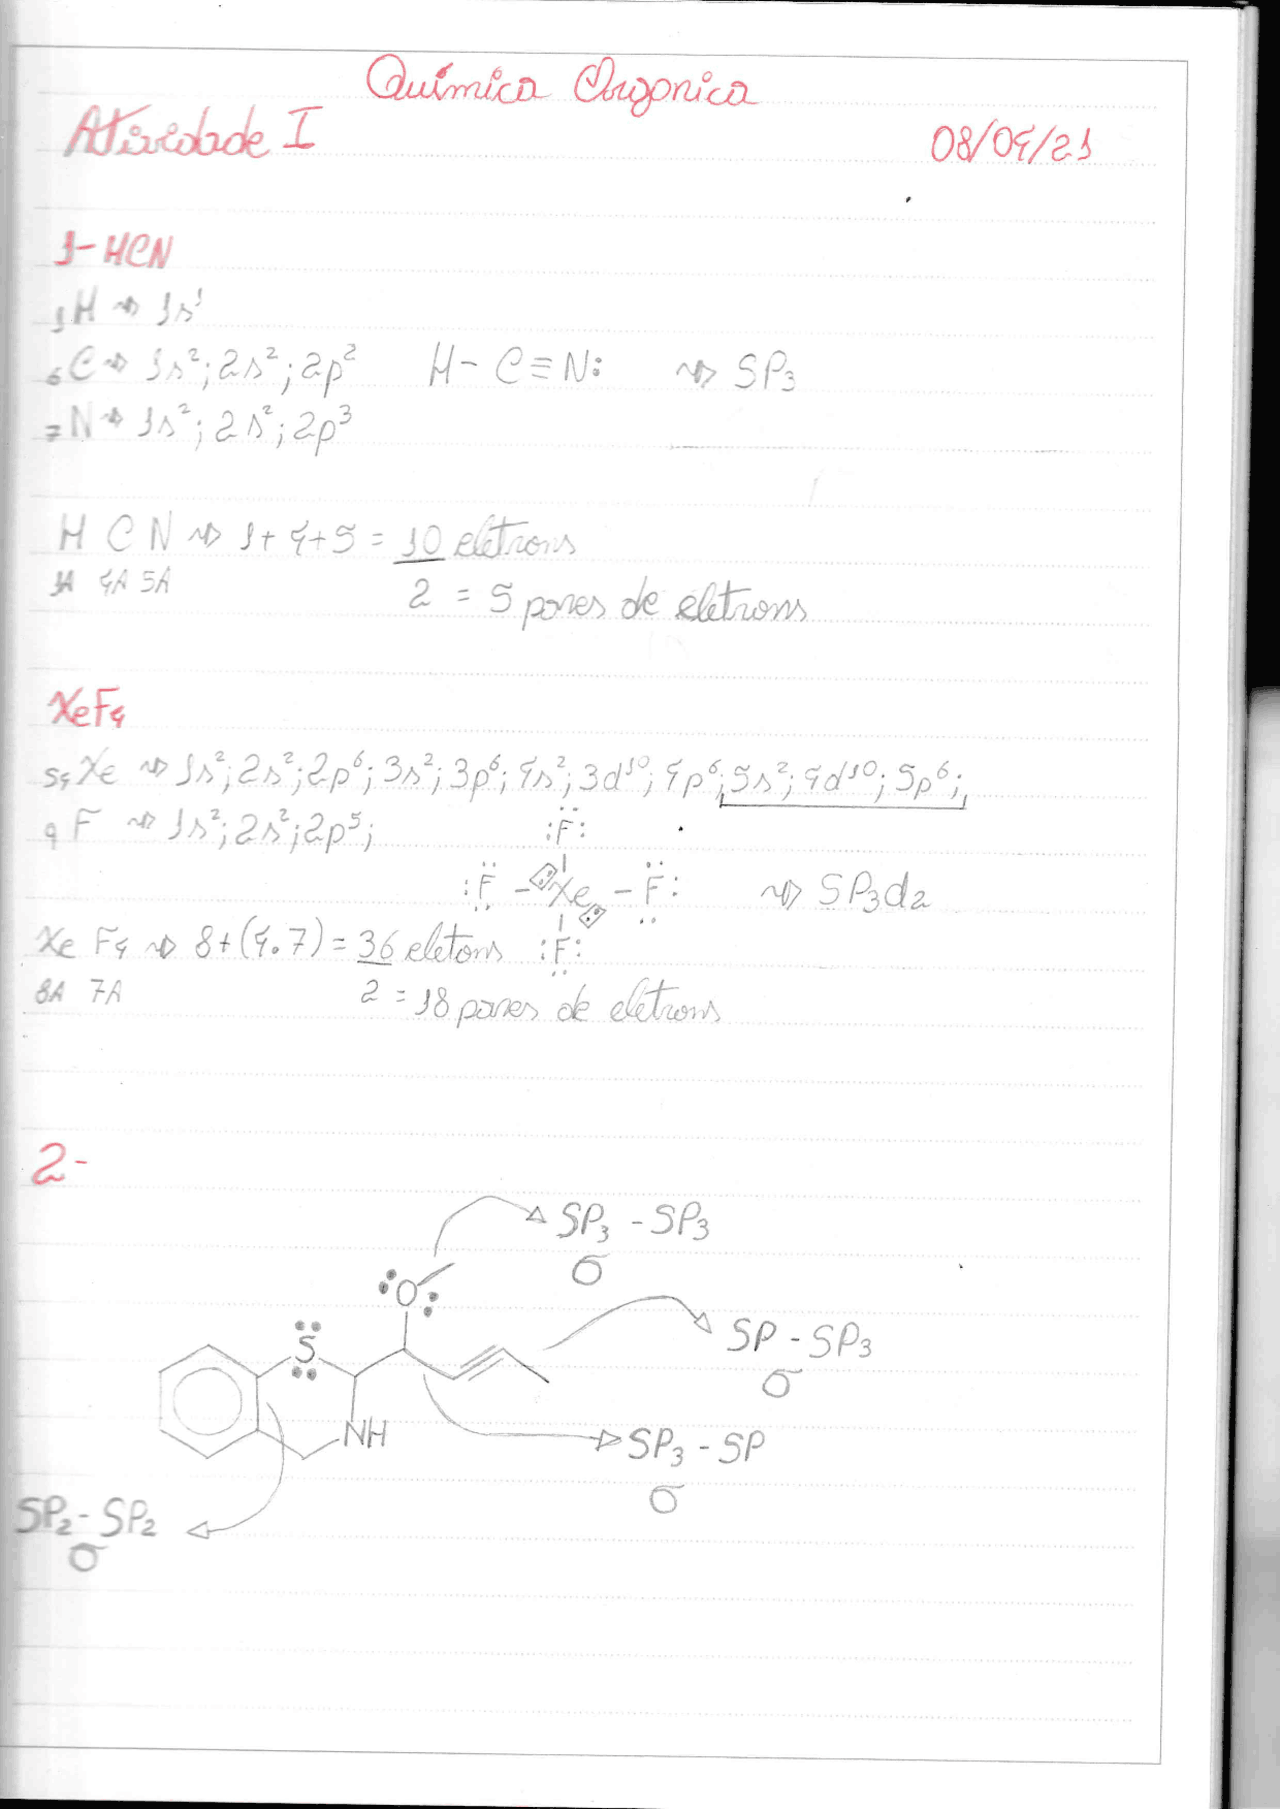 Química Orgonica
Atividade I 08/04/21
1- HCN
₁H ⇝ 1s¹
₆C ⇝ 1s²; 2s²; 2p² H - C ≡ N: ⇝ SP₃
₇N ⇝ 1s²; 2s²; 2p³
H C N ⇝ 1 + 4 + 5 = 10 eletrons
1A 4A 5A 2 = 5 pares de eletrons
XeF₄
₅₄Xe ⇝ 1s²; 2s²; 2p⁶; 3s²; 3p⁶; 4s²; 3d¹⁰; 4p⁶; 5s²; 4d¹⁰; 5p⁶;
₉F ⇝ 1s²; 2s²; 2p⁵; :F:
:F - Xe - F: ⇝ SP₃d₂
Xe F₄ ⇝ 8 + (4.7) = 36 eletons :F:
8A 7A 2 = 18 pares de eletrons
2-
SP₃ - SP₃
σ
O
S
SP - SP₃
σ
NH
SP₃ - SP
σ
SP₂ - SP₂
σ